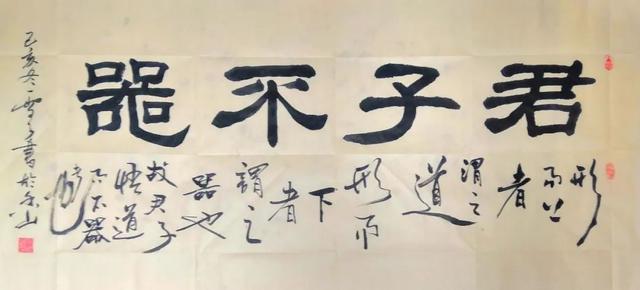 君子不器
形
而上
者
謂之
道
形而
下
者
謂之
器也
故君子
悟道
而不器
己亥冬雪子書於